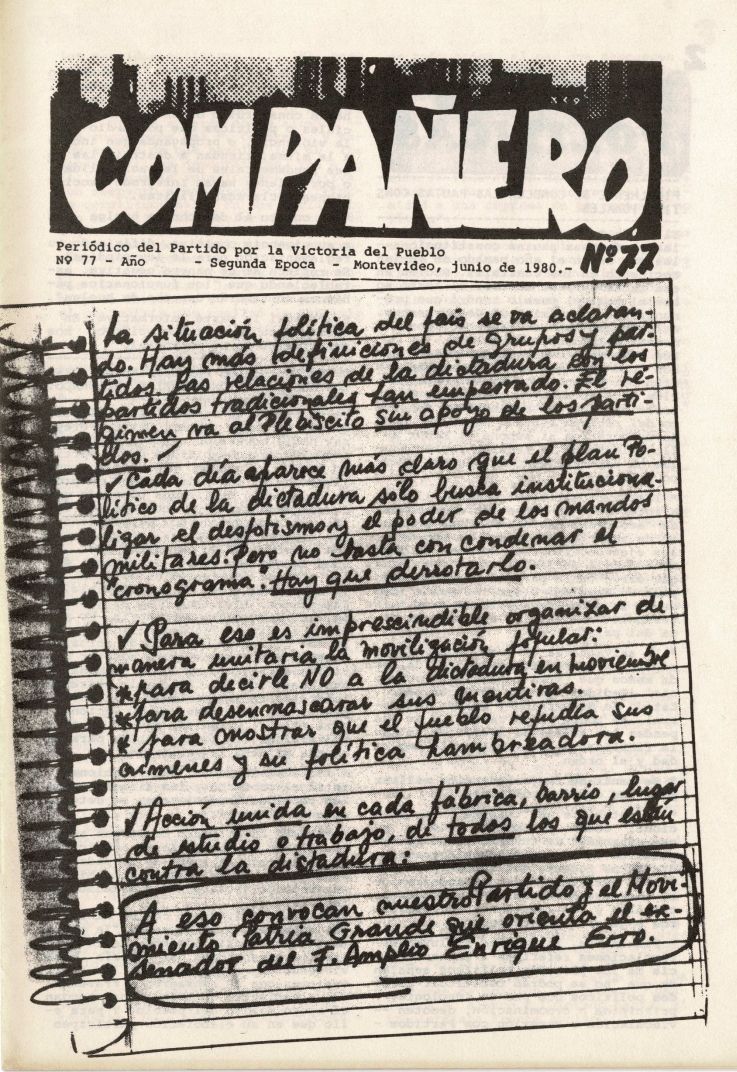 COMPAÑERO
Periódico del Partido por la Victoria del Pueblo
Nº 77 - Año - Segunda Epoca - Montevideo, junio de 1980.-
Nº 77
La situación política del país se va aclaran-
do. Hay más definiciones de grupos y par-
tidos. Las relaciones de la dictadura con los
partidos tradicionales han empeorado. El ré-
gimen va al Plebiscito sin apoyo de los parti-
dos.
✓ Cada día aparece más claro que el plan Po-
lítico de la dictadura sólo busca instituciona-
lizar el despotismo y el poder de los mandos
militares. Pero no basta con condenar el
"cronograma". Hay que derrotarlo.
✓ Para eso es imprescindible organizar de
manera unitaria la movilización popular:
* para decirle NO a la dictadura en noviembre
* para desenmascarar sus mentiras.
* para mostrar que el pueblo repudia sus
crímenes y su política hambreadora.
✓ Acción unida en cada fábrica, barrio, lugar
de estudio o trabajo, de todos los que están
contra la dictadura:
A eso convocan nuestro Partido y el Movi-
miento Patria Grande que orienta el ex-
senador del F. Amplio Enrique Erro.